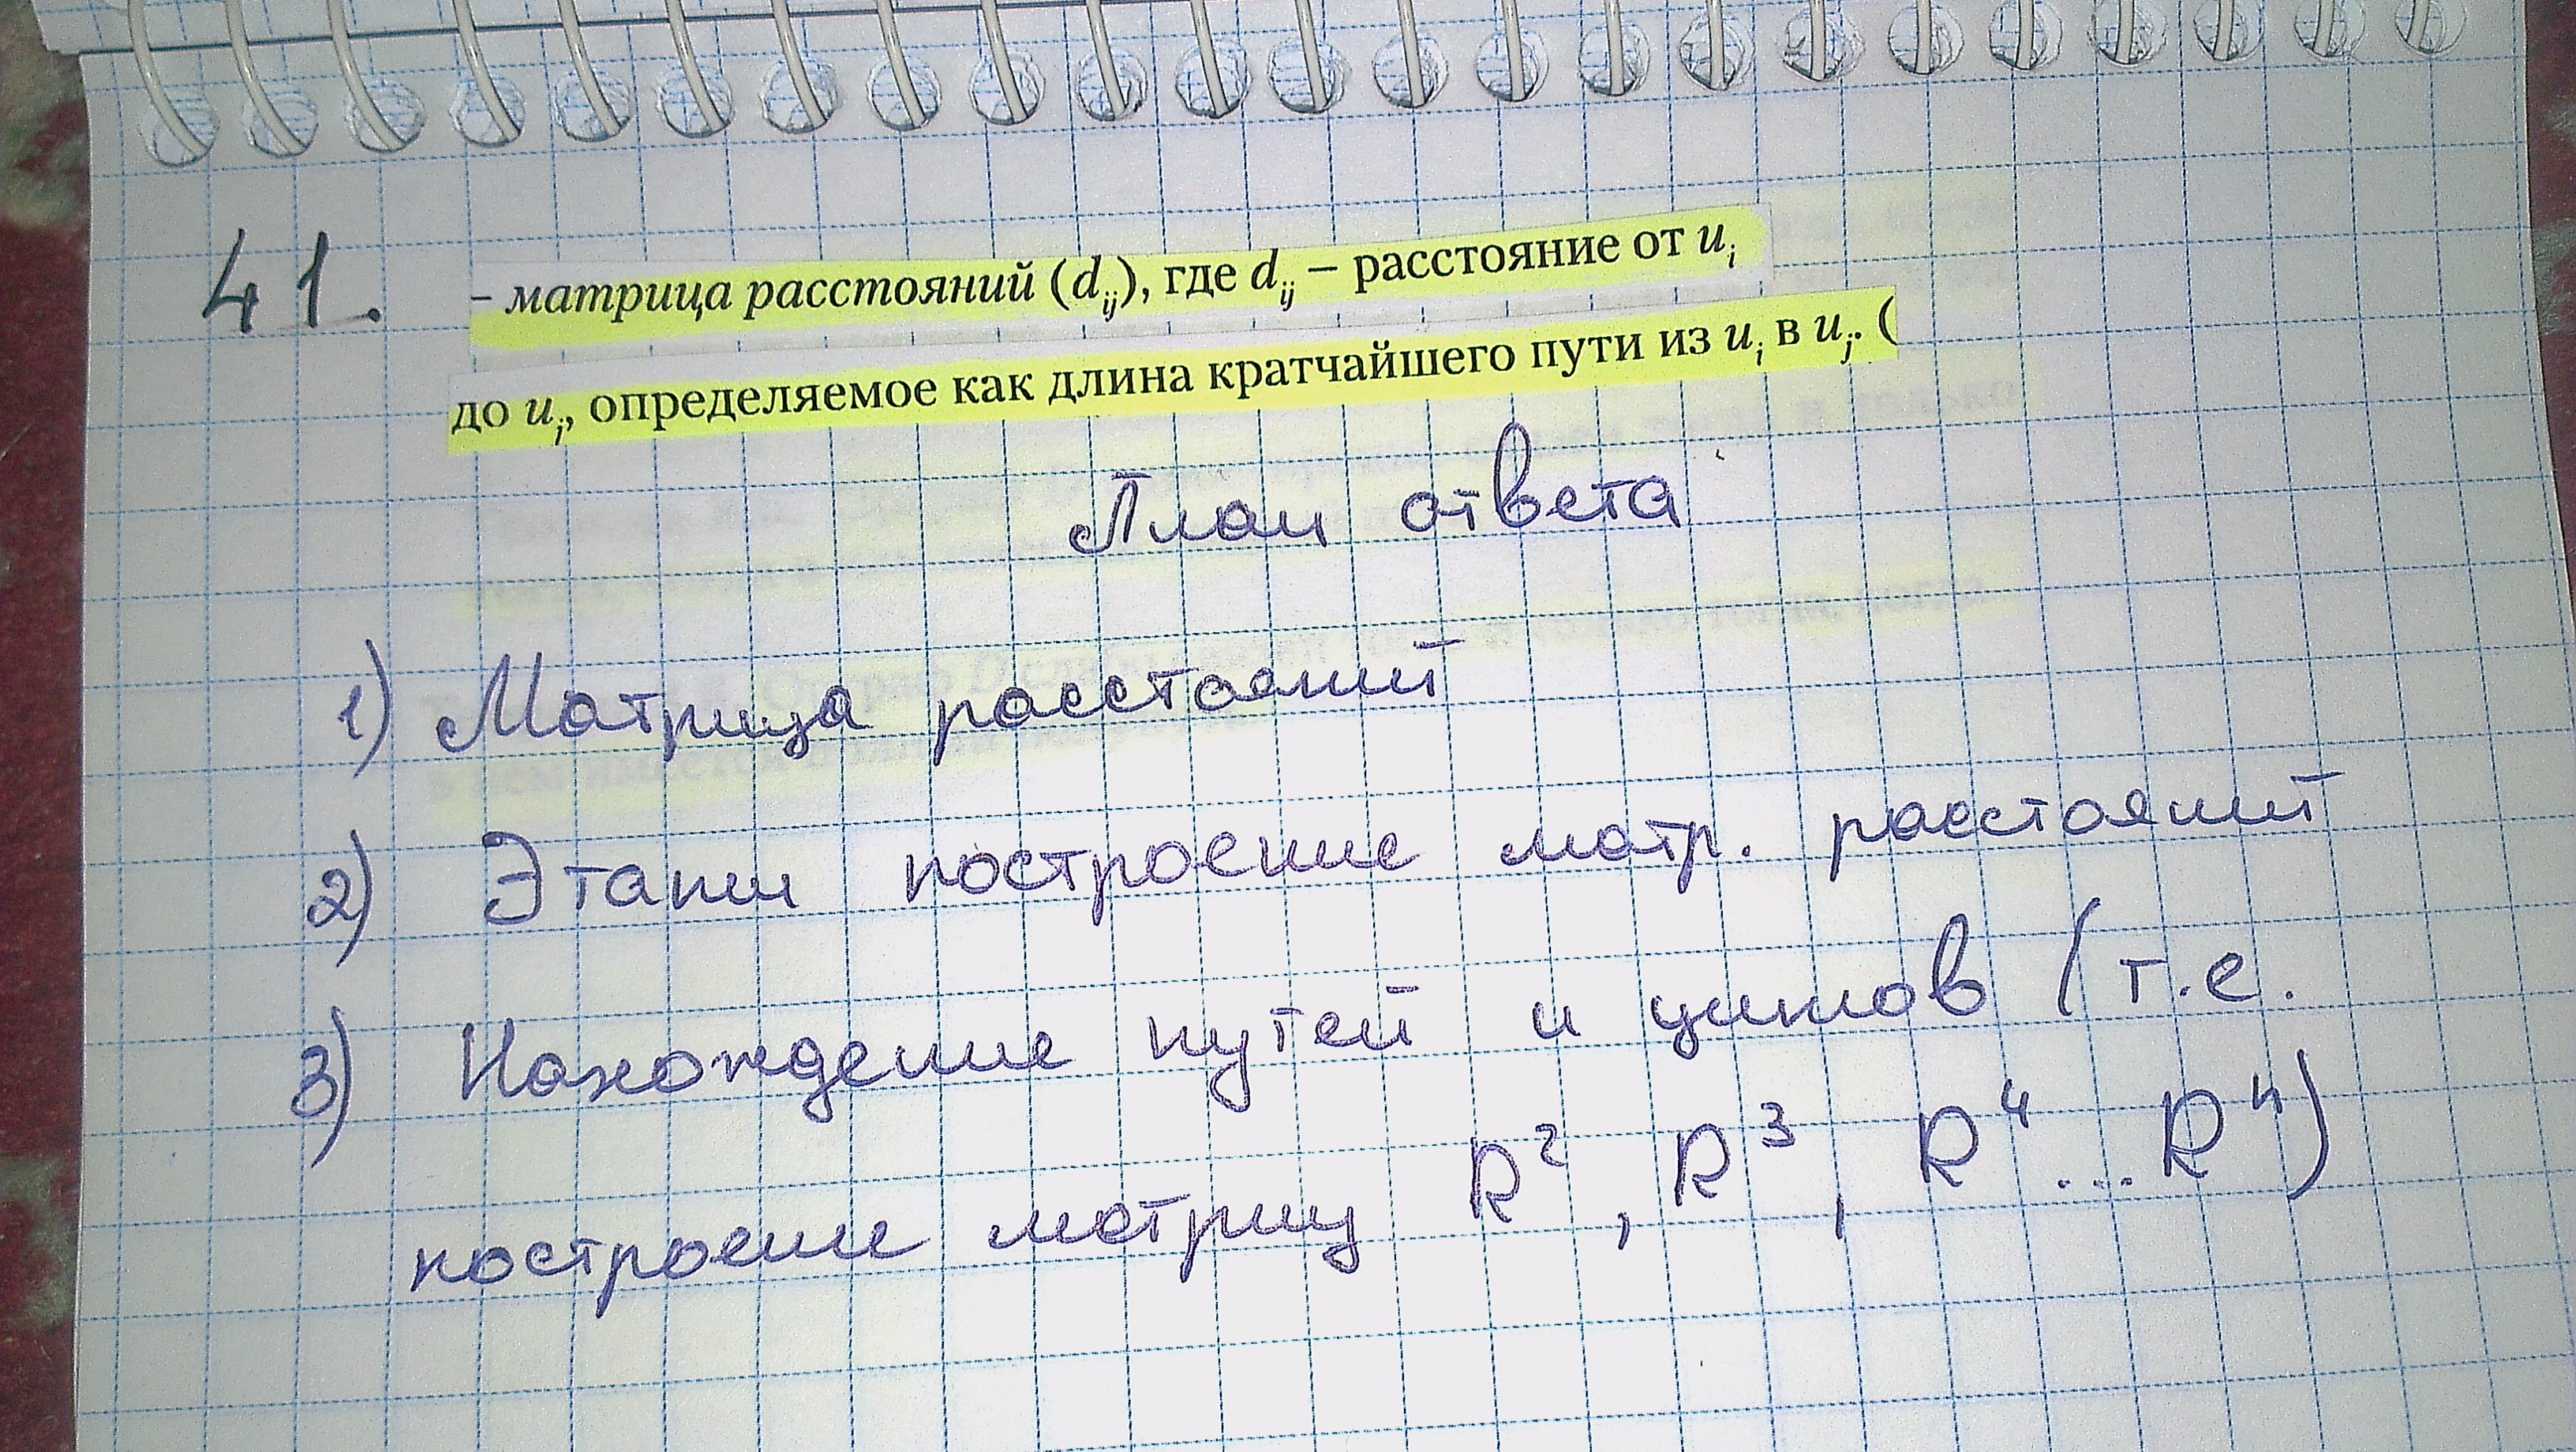 41. – матрица расстояний (dij), где dij – расстояние от ui
до uj, определяемое как длина кратчайшего пути из ui в uj. (
План ответа
1) Матрица расстояний
2) Этапы построение матр. расстояний
3) Нахождение путей и циклов (т.е.
построение матриц R², R³, R⁴ ... Rⁿ)